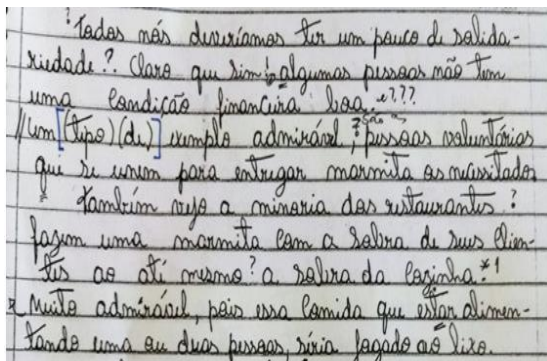 ? Todos nós deveríamos ter um pouco de solida-
riedade ?. Claro que sim! algumas pessoas não tem
uma condição financeira boa. e???
//Um [(tipo) (de)] exemplo admirável, ? são as pessoas voluntárias
que se unem para entregar marmita as nessitados
Também vejo a minoria dos restaurantes ?
fazem uma marmita com a sobra de seus clien-
tes ao até mesmo? a sobra da cozinha. *1
* Muito admirável, pois essa comida que estar alimen-
tando uma ou duas pessoas, siria jogado ao lixo.